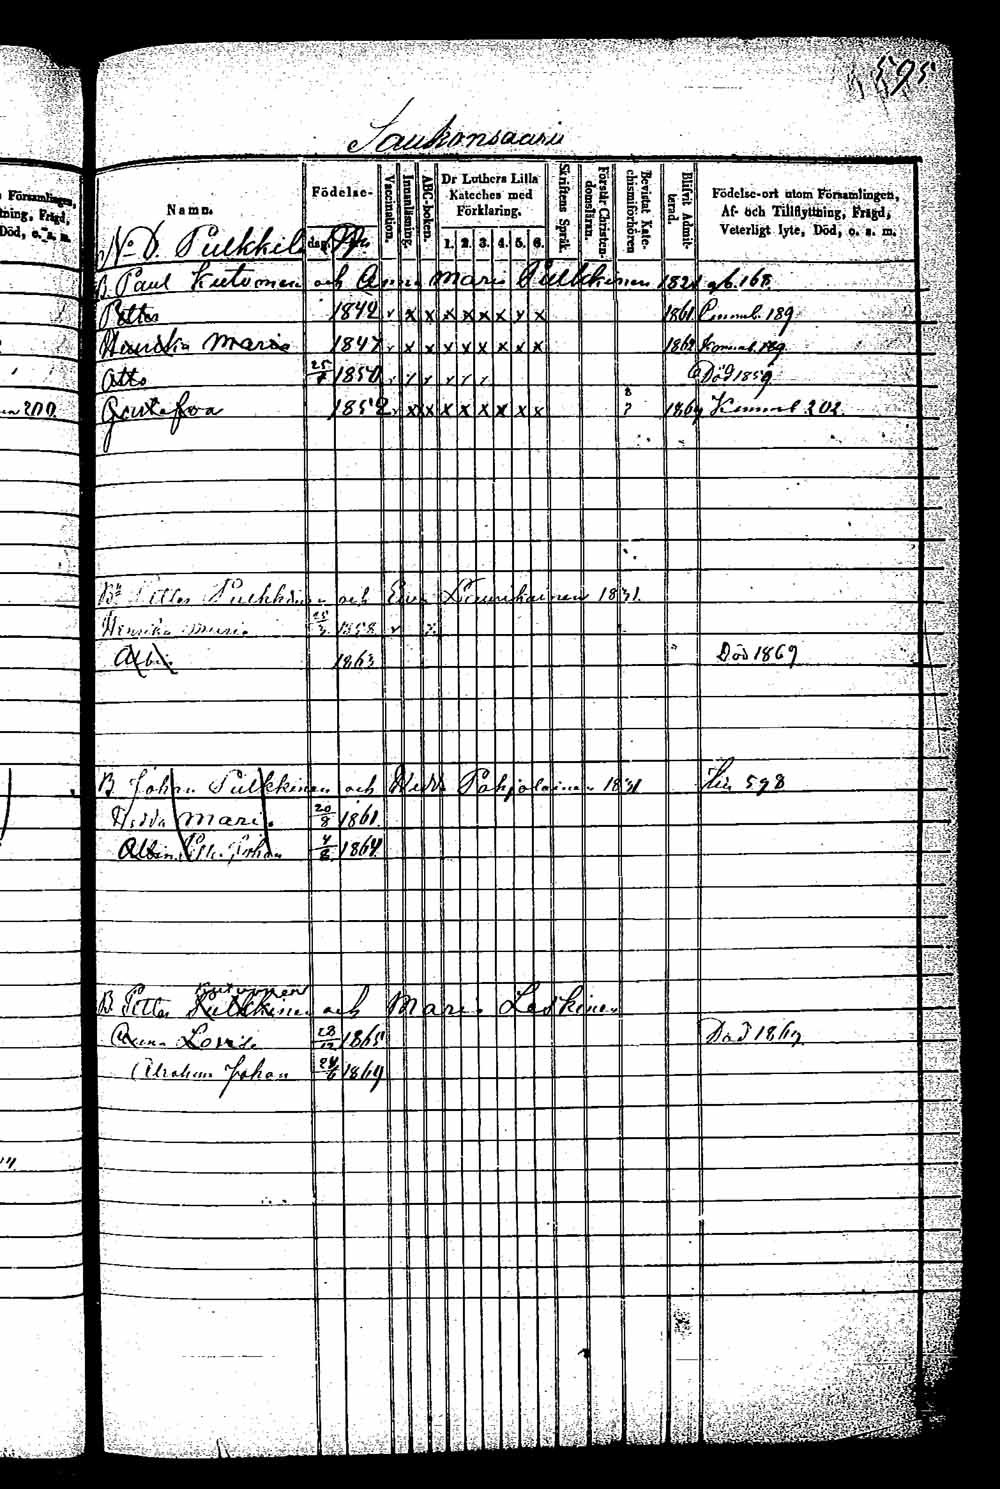 595
Saukonsaari
Namn.
Födelse-
dag.
Vaccination.
Innanläsning.
ABC-boken.
Dr Luthers Lilla Kateches med Förklaring.
1. 2. 3. 4. 5. 6.
Skriftens Språk.
Förstår Christendomsläran.
Bevistat Katechismiförhören
Blifvit Admitterad.
Födelse-ort utom Församlingen, Af- och Tillflyttning, Frägd, Veterligt lyte, Död, o. s. m.
Församlingen,
tning, Frägd,
Död, o. s. m.
No D. Pulkkila
B. Paul Kutvonen och Anna Maria Pulkkinen 1821 168.
Petter 1842 v x x x x x x v x 1861 189
Henrika Maria 1847 v x x x x x x x x 189
Otto 25/7 1850 Död 1859
Gustafva 1852 v x x x x x x x x 202.
Petter Pulkkinen och Eva 1831.
Henrika Maria 1858 v
Albin 1863 Död 1869
B. Johan Pulkkinen och Hedda Pohjolainen 1831 598
Hedda Maria 20/8 1861.
Albin Johan 4/8 1864.
Kutvonen
B. Petter Pulkkinen och Maria Leskinen
Anna Lovisa 28/12 1865 Död 1867
Abraham Johan 24/6 1869